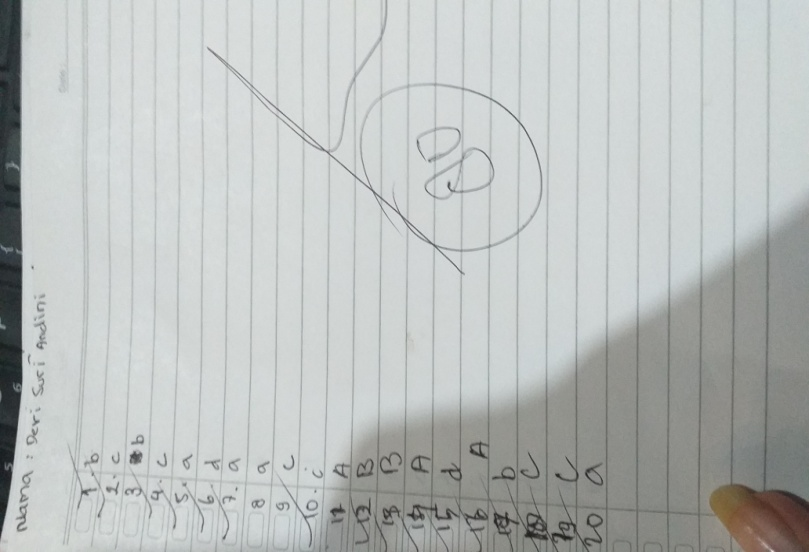 Nama : Deri Suri Andini
1. b
2. c
3. b
4. c
5. a
6. d
7. a
8 a
9 c
10. c
11 A
12 B
13 B
14 A
15 d
16 A
17 b
18 C
19 C
20 a
80